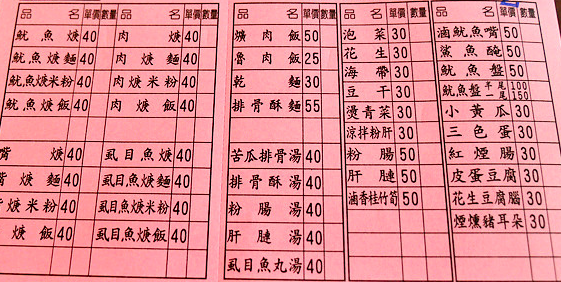 品名 單價 數量 品名 單價 數量
魷魚焿 40 肉焿 40
魷魚焿麵 40 肉焿麵 40
魷魚焿米粉 40 肉焿米粉 40
魷魚焿飯 40 肉焿飯 40
嘴焿 40 虱目魚焿 40
嘴焿麵 40 虱目魚焿麵 40
焿米粉 40 虱目魚焿米粉 40
焿飯 40 虱目魚焿飯 40
品名 單價 數量
爌肉飯 50
魯肉飯 25
乾麵 30
排骨酥麵 55
苦瓜排骨湯 40
排骨酥湯 40
粉腸湯 40
肝腱湯 40
虱目魚丸湯 40
品名 單價 數量
泡菜 30
花生 30
海帶 30
豆干 30
燙青菜 30
涼拌粉肝 30
粉腸 50
肝腱 50
滷香桂竹筍 50
品名 單價 數量
滷魷魚嘴 50
鯊魚醃 50
魷魚盤 50
魷魚盤 半尾 100 一尾 150
小黃瓜 30
三色蛋 30
紅煙腸 30
皮蛋豆腐 30
花生豆腐腦 30
煙燻豬耳朵 30